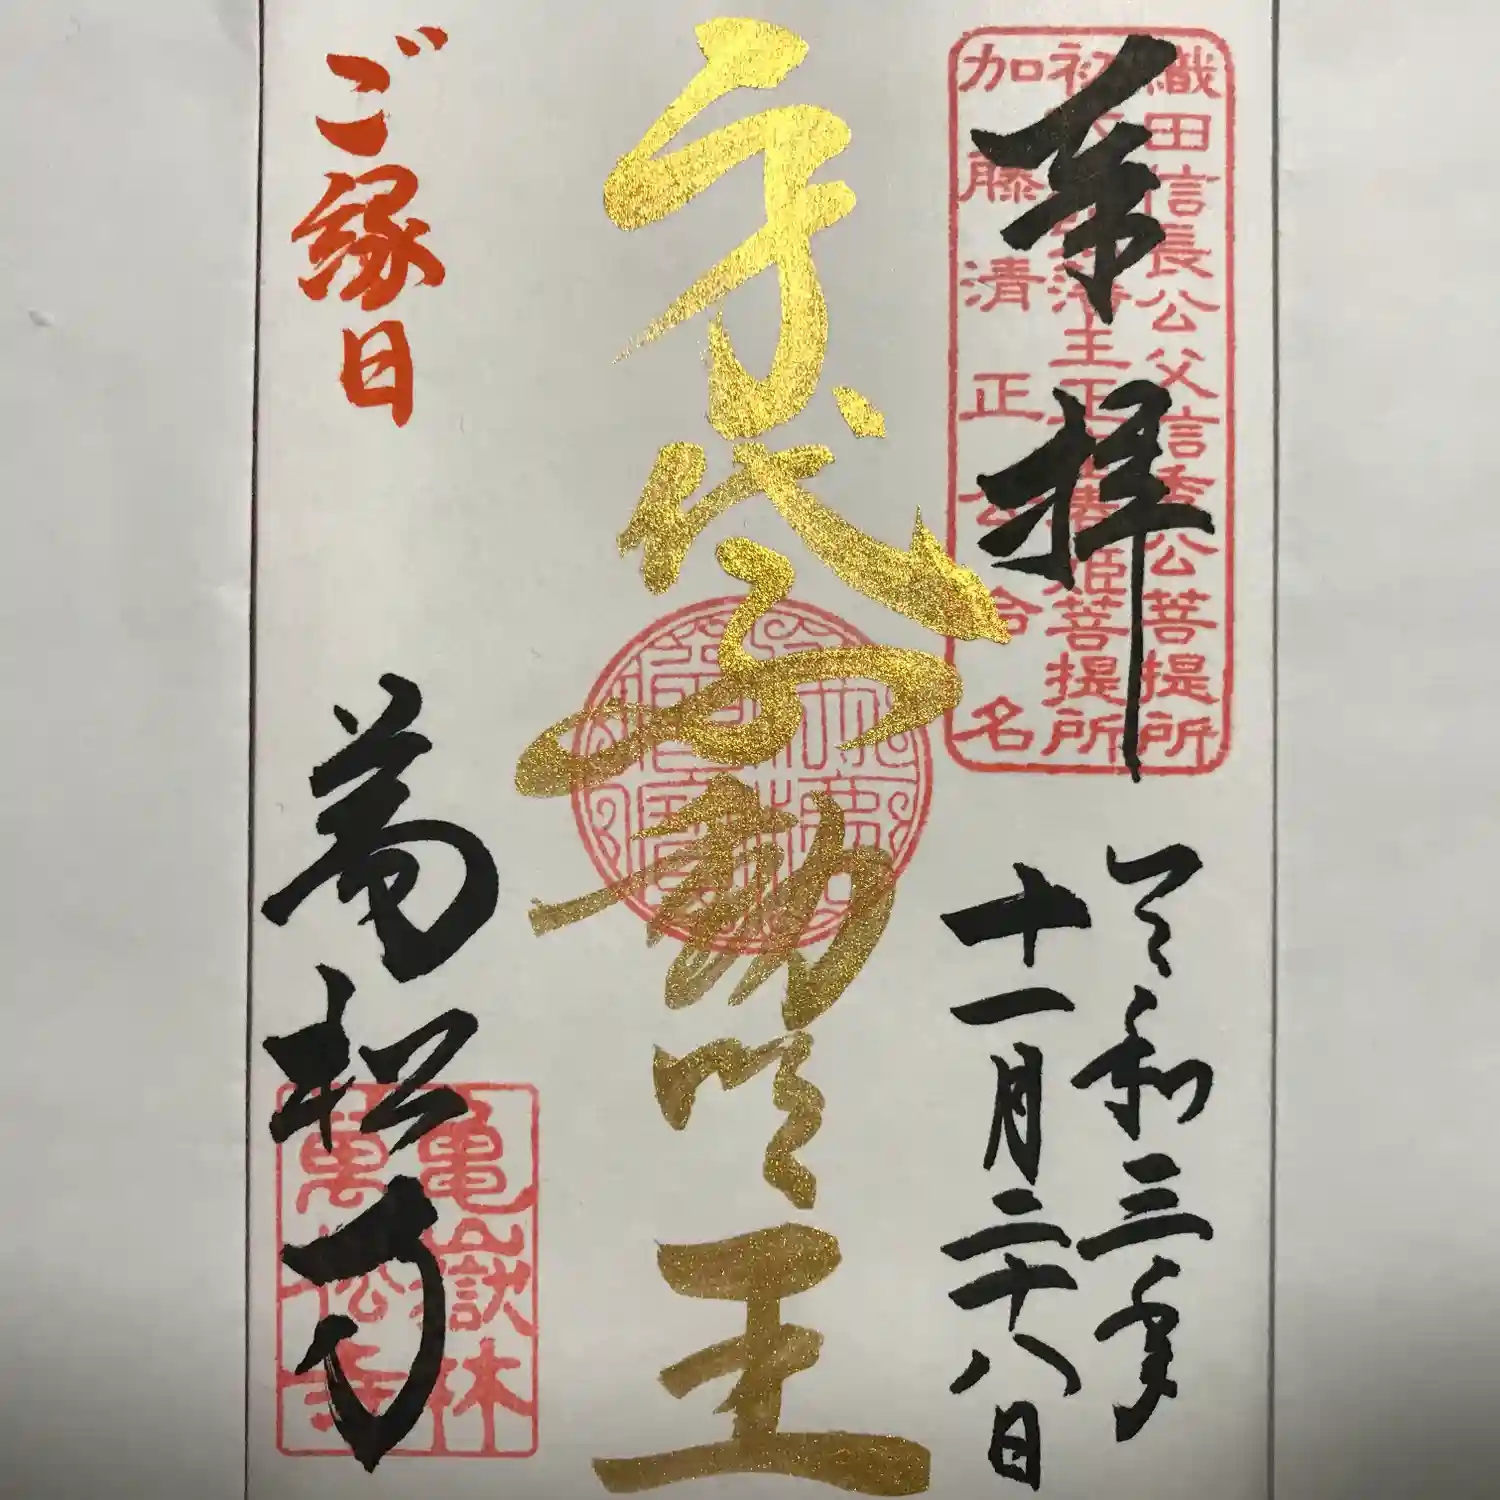 織田信長公父信秀公菩提所
藩主正室春姫菩提所
加藤清正公命名
奉拝
令和三年
十一月二十八日
身代不動明王
ご縁日
萬松寺
亀嶽林
萬松寺